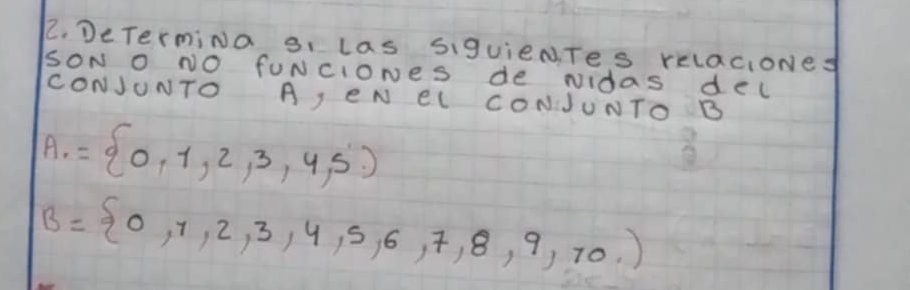 2. Determina si las siguientes relaciones
son o no funciones de nidas del
conjunto A, en el conjunto B
A.= {0, 1, 2, 3, 4, 5.)
B= {0, 1, 2, 3, 4, 5, 6, 7, 8, 9, 10.)